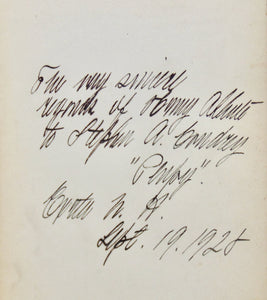 The very sincere
regards of Henry Abbott
to Stephen A.
"Penfy".
N. Y.
Sept. 19. 1928